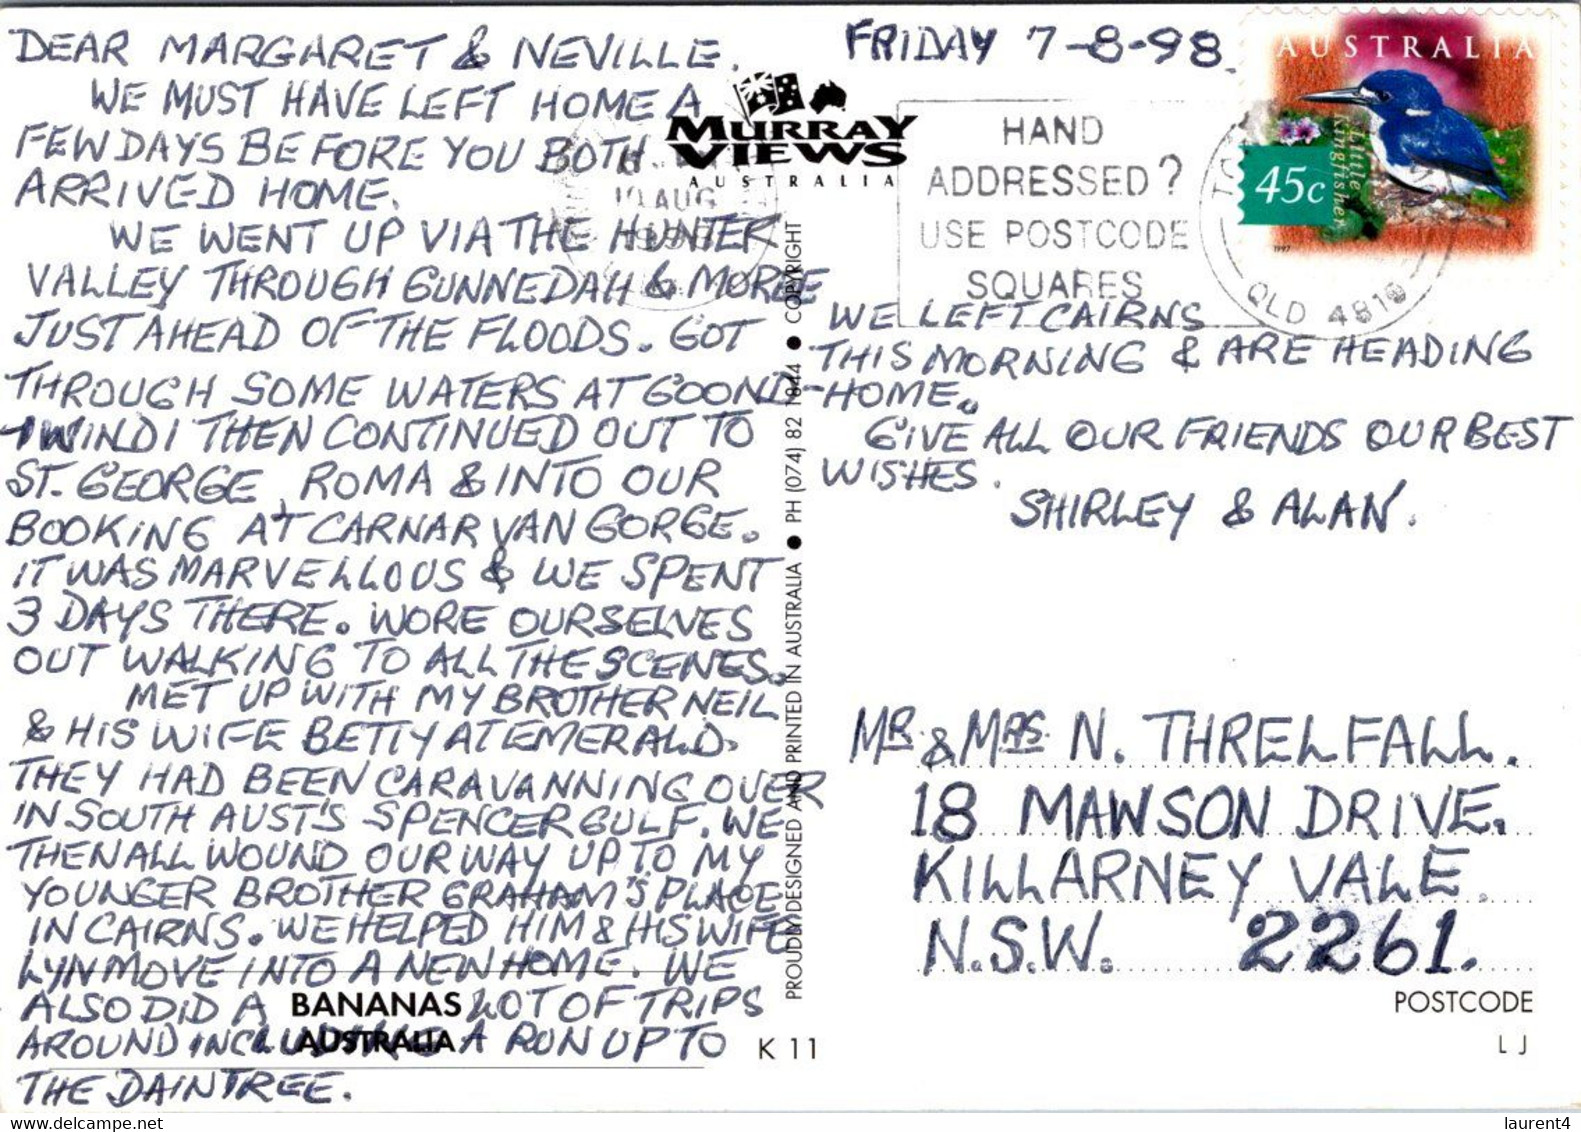 DEAR MARGARET & NEVILLE.
WE MUST HAVE LEFT HOME A
FEW DAYS BEFORE YOU BOTH
ARRIVED HOME.
WE WENT UP VIA THE HUNTER
VALLEY THROUGH GUNNEDAH & MOREE
JUST AHEAD OF THE FLOODS. GOT
THROUGH SOME WATERS AT GOOND-
-IWINDI THEN CONTINUED OUT TO
ST. GEORGE, ROMA & INTO OUR
BOOKING AT CARNARVAN GORGE.
IT WAS MARVELLOUS & WE SPENT
3 DAYS THERE. WORE OURSELVES
OUT WALKING TO ALL THE SCENES.
MET UP WITH MY BROTHER NEIL
& HIS WIFE BETTY AT EMERALD.
THEY HAD BEEN CARAVANNING OVER
IN SOUTH AUST'S SPENCER GULF. WE
THEN ALL WOUND OUR WAY UP TO MY
YOUNGER BROTHER GRAHAM'S PLACE
IN CAIRNS. WE HELPED HIM & HIS WIFE
LYN MOVE INTO A NEW HOME. WE
ALSO DID A LOT OF TRIPS
AROUND INCLUDING A RUN UP TO
THE DAINTREE.
BANANAS
AUSTRALIA
K 11
MURRAY
VIEWS
AUSTRALIA
10 AUG
1998
PROUDLY DESIGNED AND PRINTED IN AUSTRALIA ● PH (074) 82 1844 ● COPYRIGHT
FRIDAY 7-8-98.
HAND
ADDRESSED?
USE POSTCODE
SQUARES
QLD 4810
AUSTRALIA
45c
Little
Kingfisher
1997
WE LEFT CAIRNS
THIS MORNING & ARE HEADING
HOME.
GIVE ALL OUR FRIENDS OUR BEST
WISHES.
SHIRLEY & ALAN.
MR. & MRS. N. THRELFALL.
18 MAWSON DRIVE.
KILLARNEY VALE.
N.S.W. 2261.
POSTCODE
LJ
laurent4